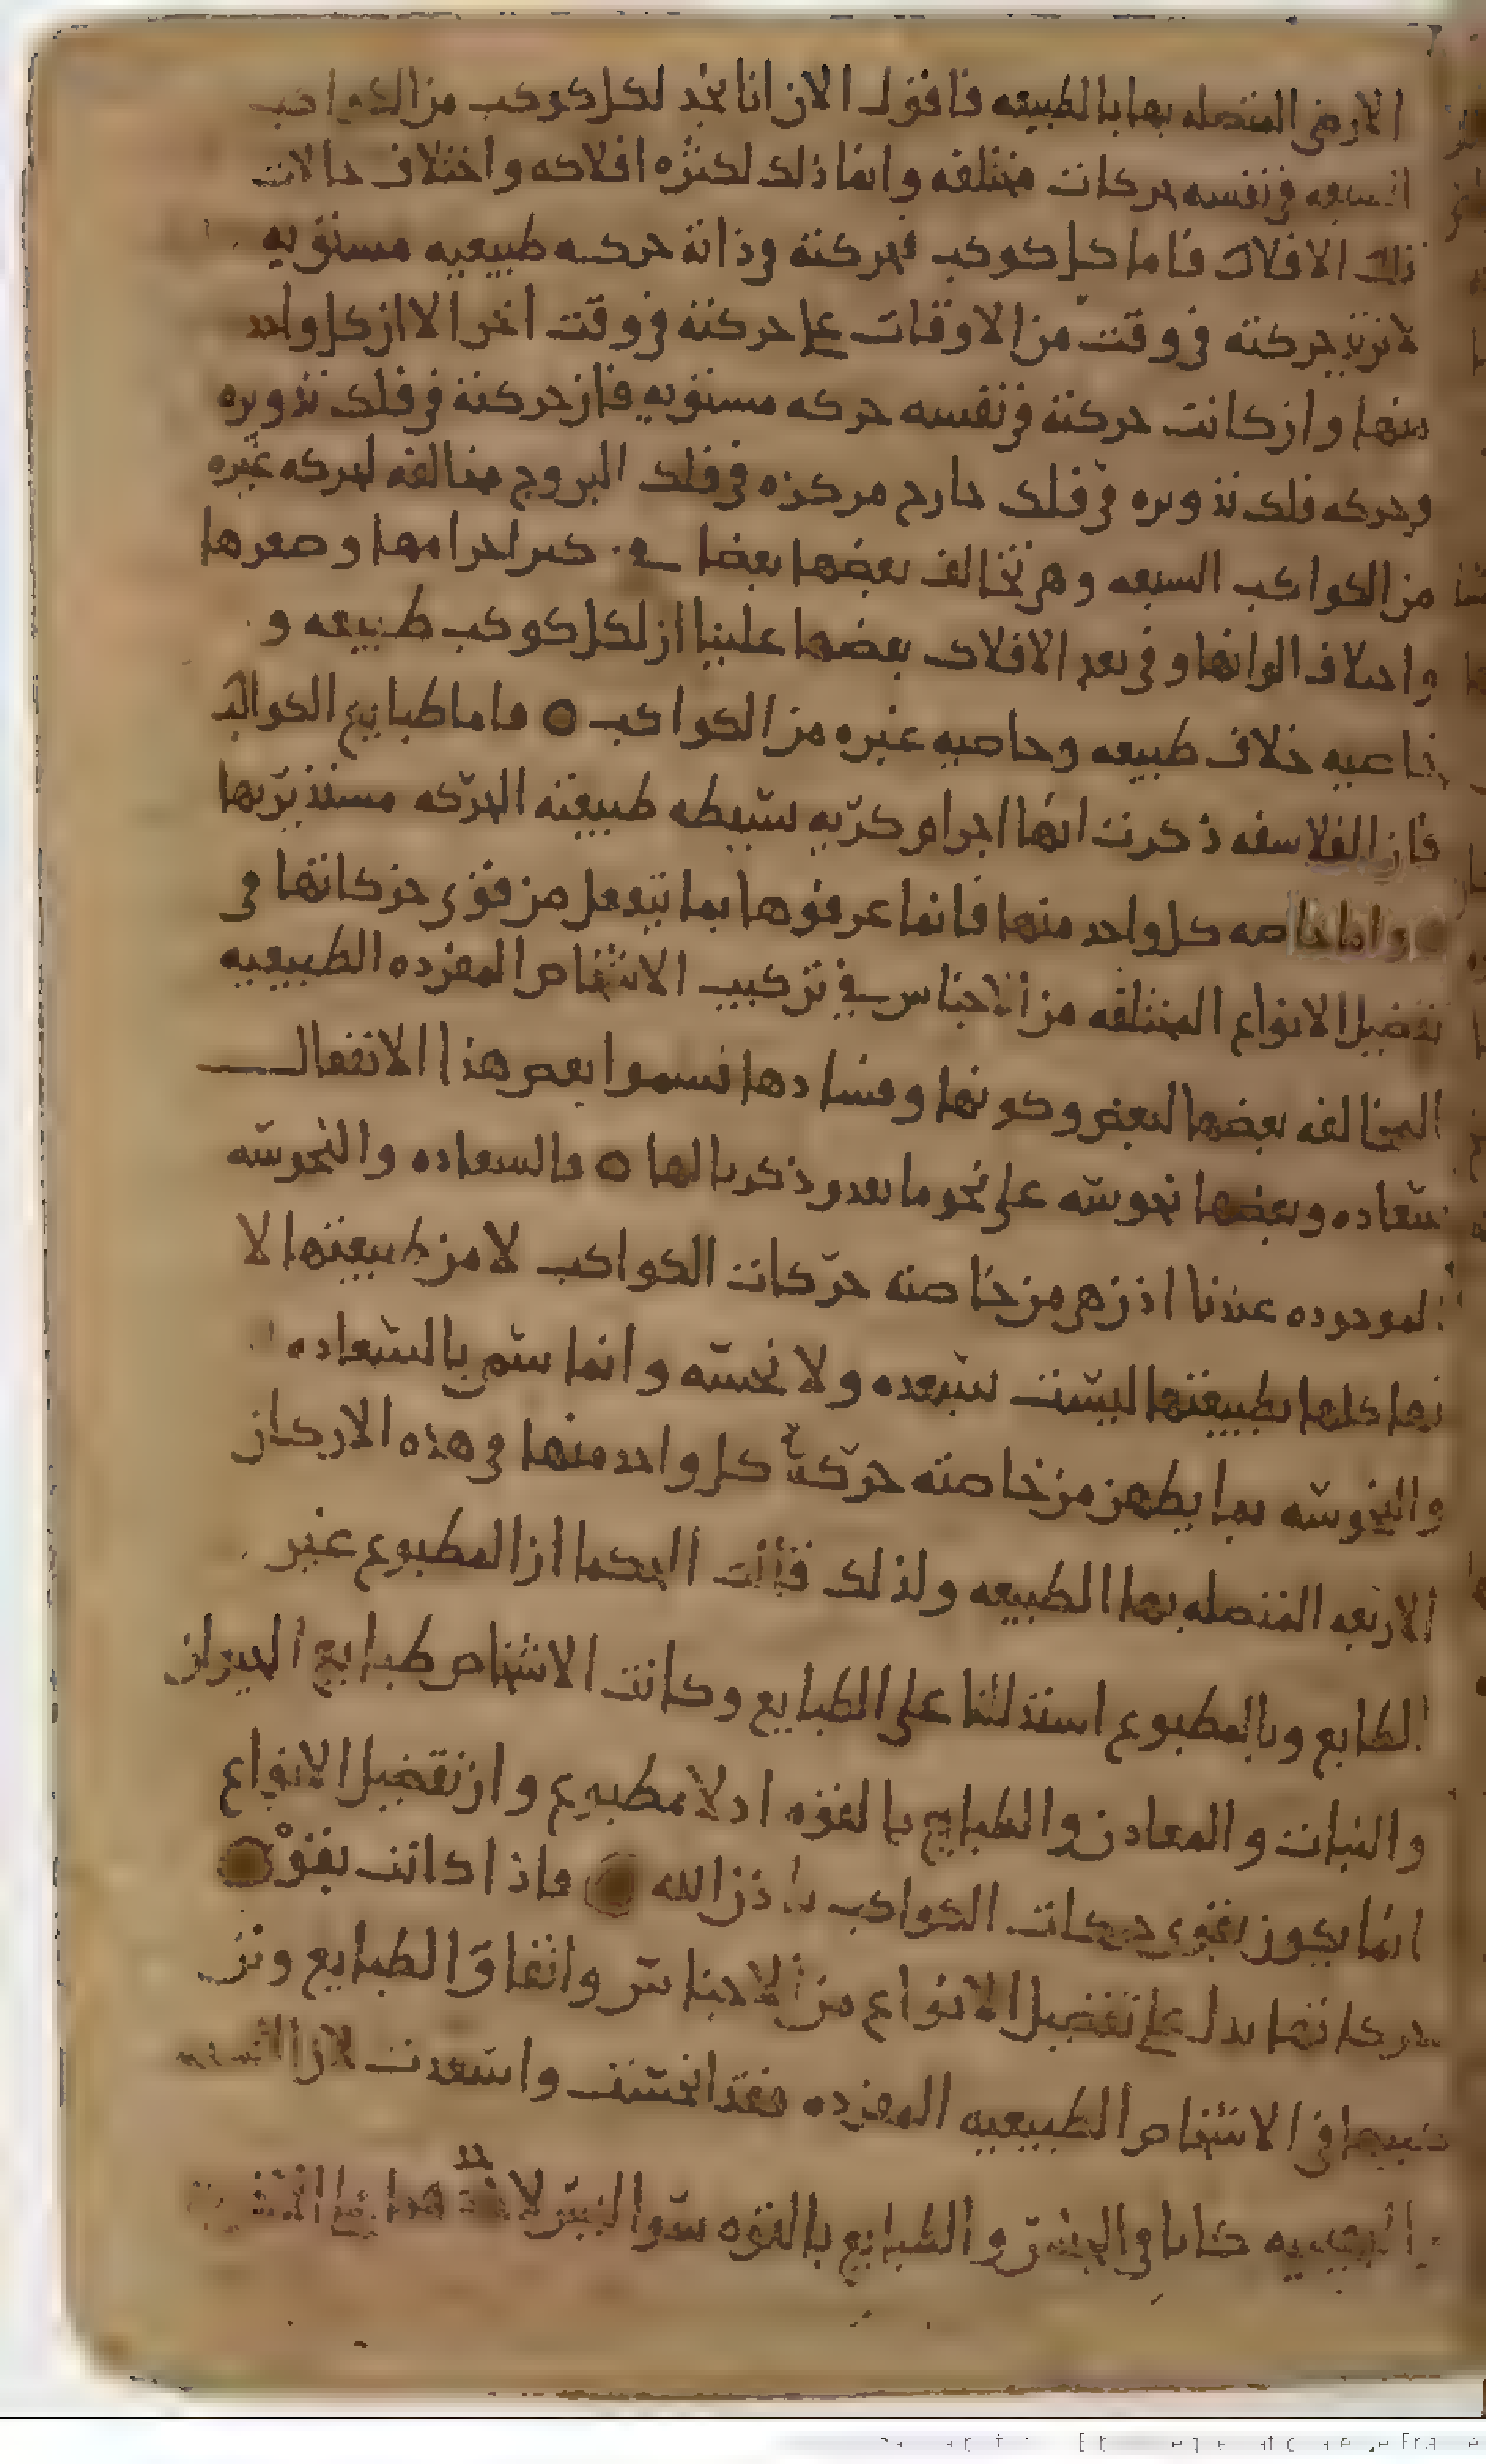 الارضى المتصله بها بالطبيعه فاقول الان انا نجد لكل كوكب من الكواكب
السبعه فى نفسه حركات مختلفه وانما ذلك لكثره افلاكه واختلاف حالات
تلك الافلاك فاما كل كوكب فحركته فى ذاته حركه طبيعيه مستويه
لا تزيد حركته فى وقت من الاوقات على حركته فى وقت اخر الا ان كل واحد
منها وان كانت حركته فى نفسه حركه مستويه فان حركته فى فلك تدويره
وحركه فلك تدويره فى فلك خارج مركزه فى فلك البروج مخالفه لحركه غيره
من الكواكب السبعه وهى تخالف بعضها بعضا فى كبر اجرامها وصغرها
واختلاف الوانها وفى بعد الافلاك بعضها علينا ان لكل كوكب طبيعه و
خاصيه خلاف طبيعه وخاصيه غيره من الكواكب ٥ فاما طبايع الكواكب
فان الفلاسفه ذكرت انها اجرام كريه بسيطه طبيعته الحركه مستديرتها
واما خاصه كل واحد منها فانما عرفوها بما ينفعل من قوى حركاتها فى
تفصيل الانواع المختلفه من الاجناس فى تركيب الاشخاص المفرده الطبيعيه
المخالفه بعضها لبعض وكونها وفسادها فسموا بعض هذا الانفعال
سعاده وبعضها نحوسه على نحو ما بعدو ذكرنا لها ٥ فالسعاده والنحوسه
الموجوده عندنا اذن هى من خاصته حركات الكواكب لا من طبيعتها لا
نها كلها بطبيعتها ليست بسعده ولا نحسه وانما سمى بالسعاده
والنحوسه بما يظهر من خاصته حركه كل واحد منها فى هذه الاركان
الاربعه المتصله بها الطبيعه ولذلك قالت الحكما ان المطبوع غير
الطابع وبالمطبوع استدللنا على الطبايع وكانت الاشخاص طبايع الحيوان
والنبات والمعادن والطبايع بالقوه اد لا مطبوع وان تفصيل الانواع
انما يكون بقوى حركات الكواكب باذن الله ٥ فاذا كانت بقوه
حركاتها يدل على تفصيل الانواع من الاجناس واتفاق الطبايع وتر
كيبها فى الاشخاص الطبيعيه المفرده فقد انحست واسعدت لان
كانا فى الجنس والطبايع بالقوه